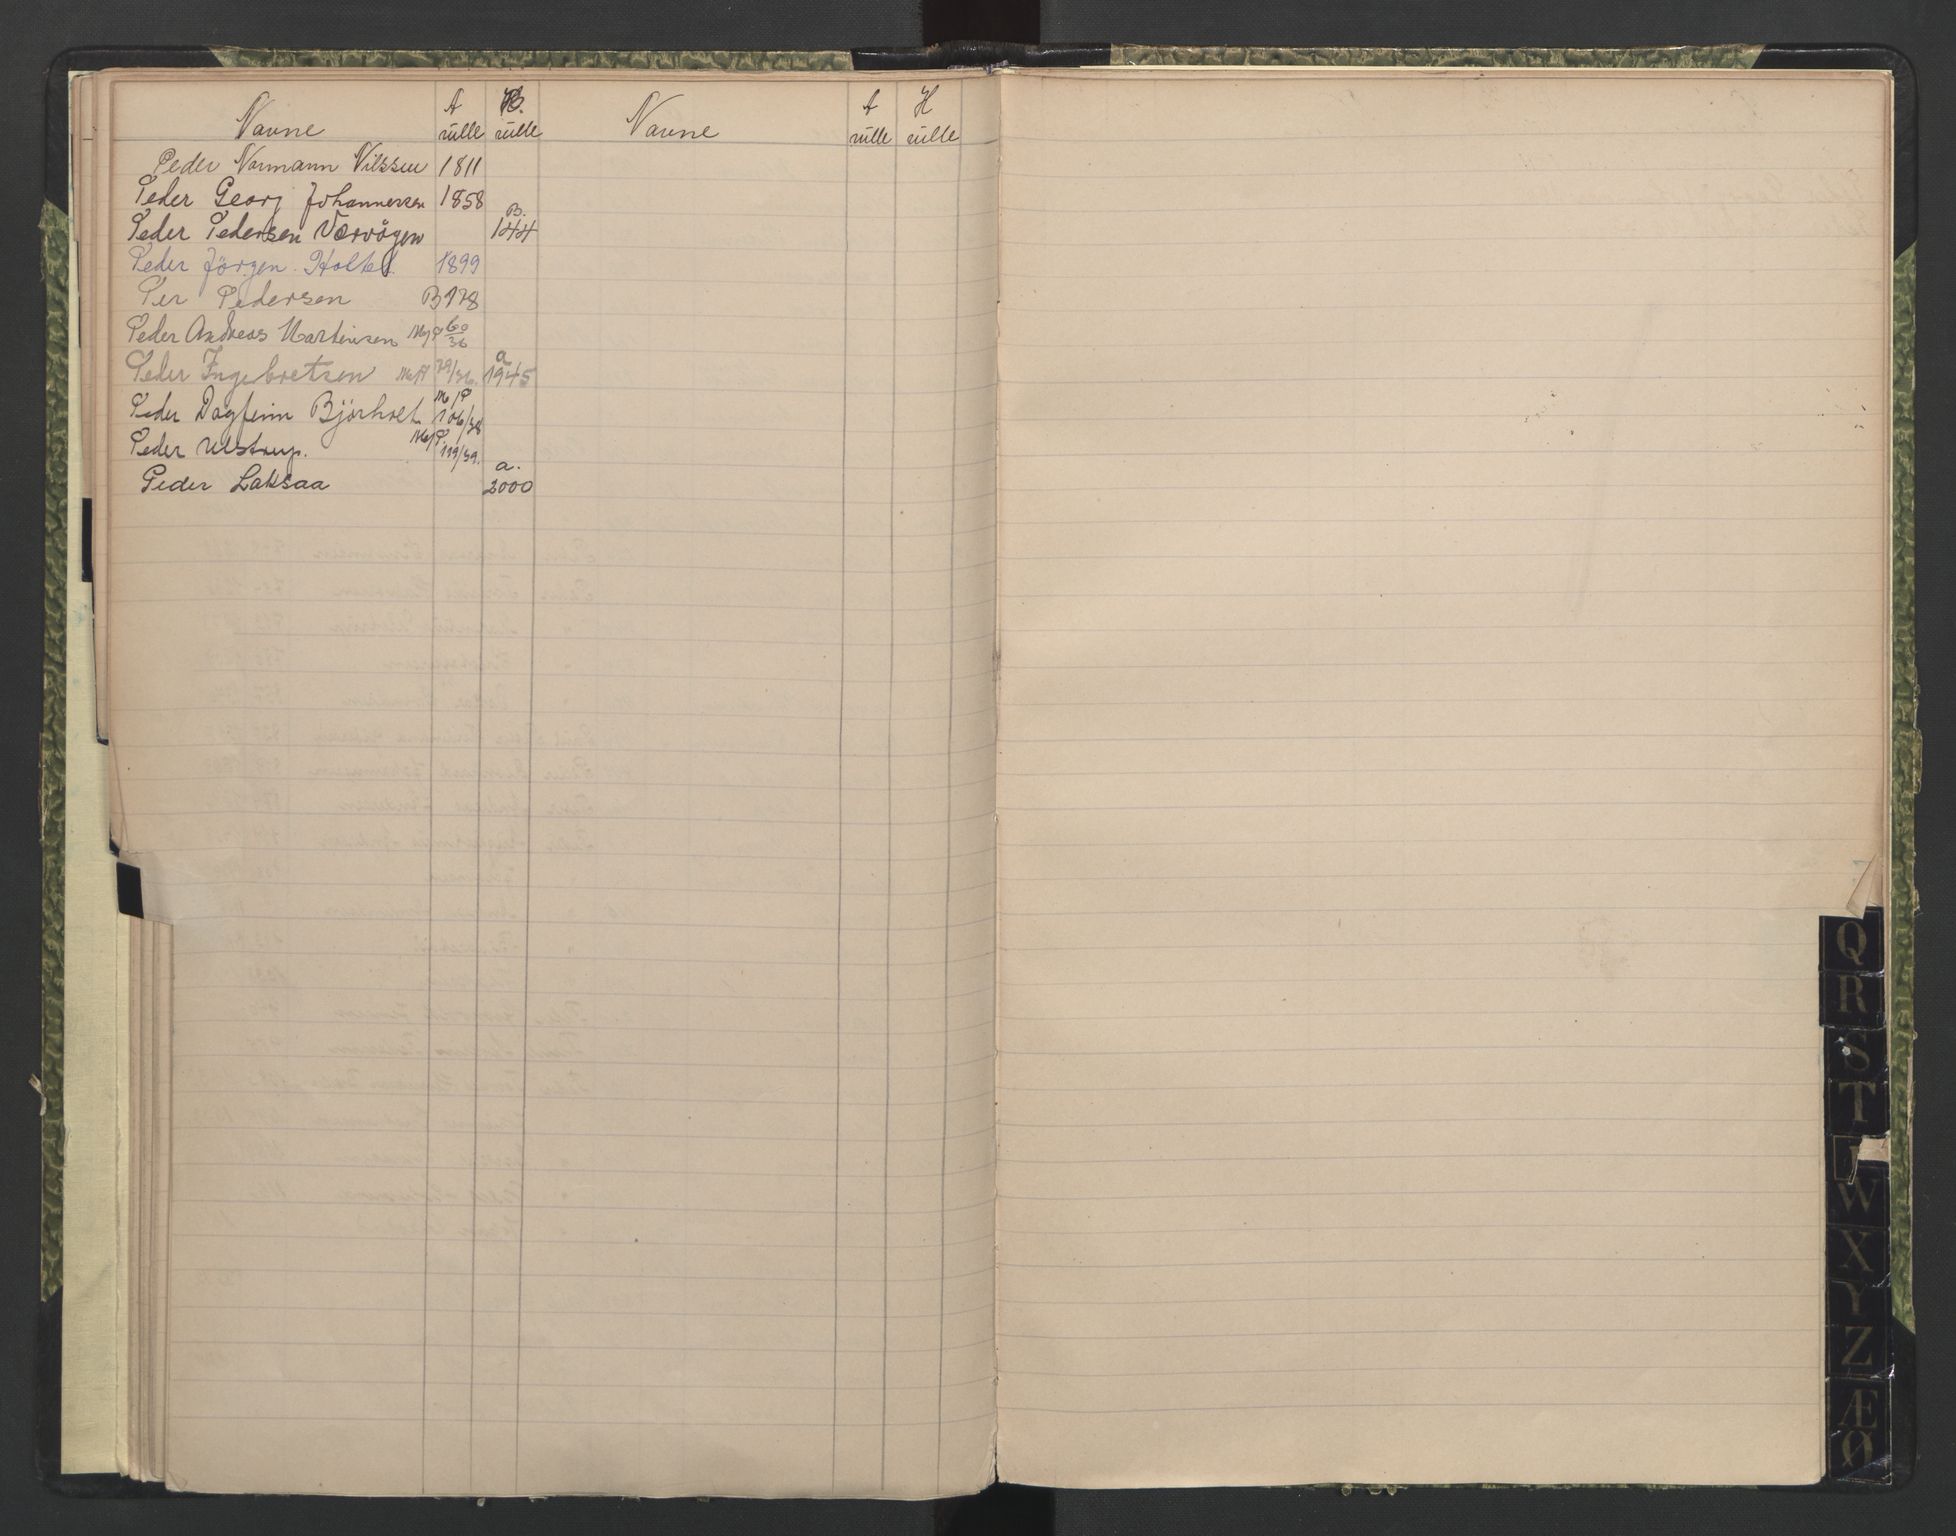 Navne A rulle B. rulle Navne A rulle H rulle
Peder Normann Nilssen 1811
Peder Georg Johannessen 1858
Peder Pedersen Værvågen B. 144
Peder Jörgen Holtet 1899
Per Pedersen B 178
Peder Andreas Martinsen M/P 60/36
Peder Ingebretsen 79/36. a 1945
Peder Dagfinn Bjørholt M/P 106/38
Peder Ulstrup. M/P. 119/39.
Peder Laksaa a. 2000
Q
R
S
T
W
X
Y
Z
Æ
Ø